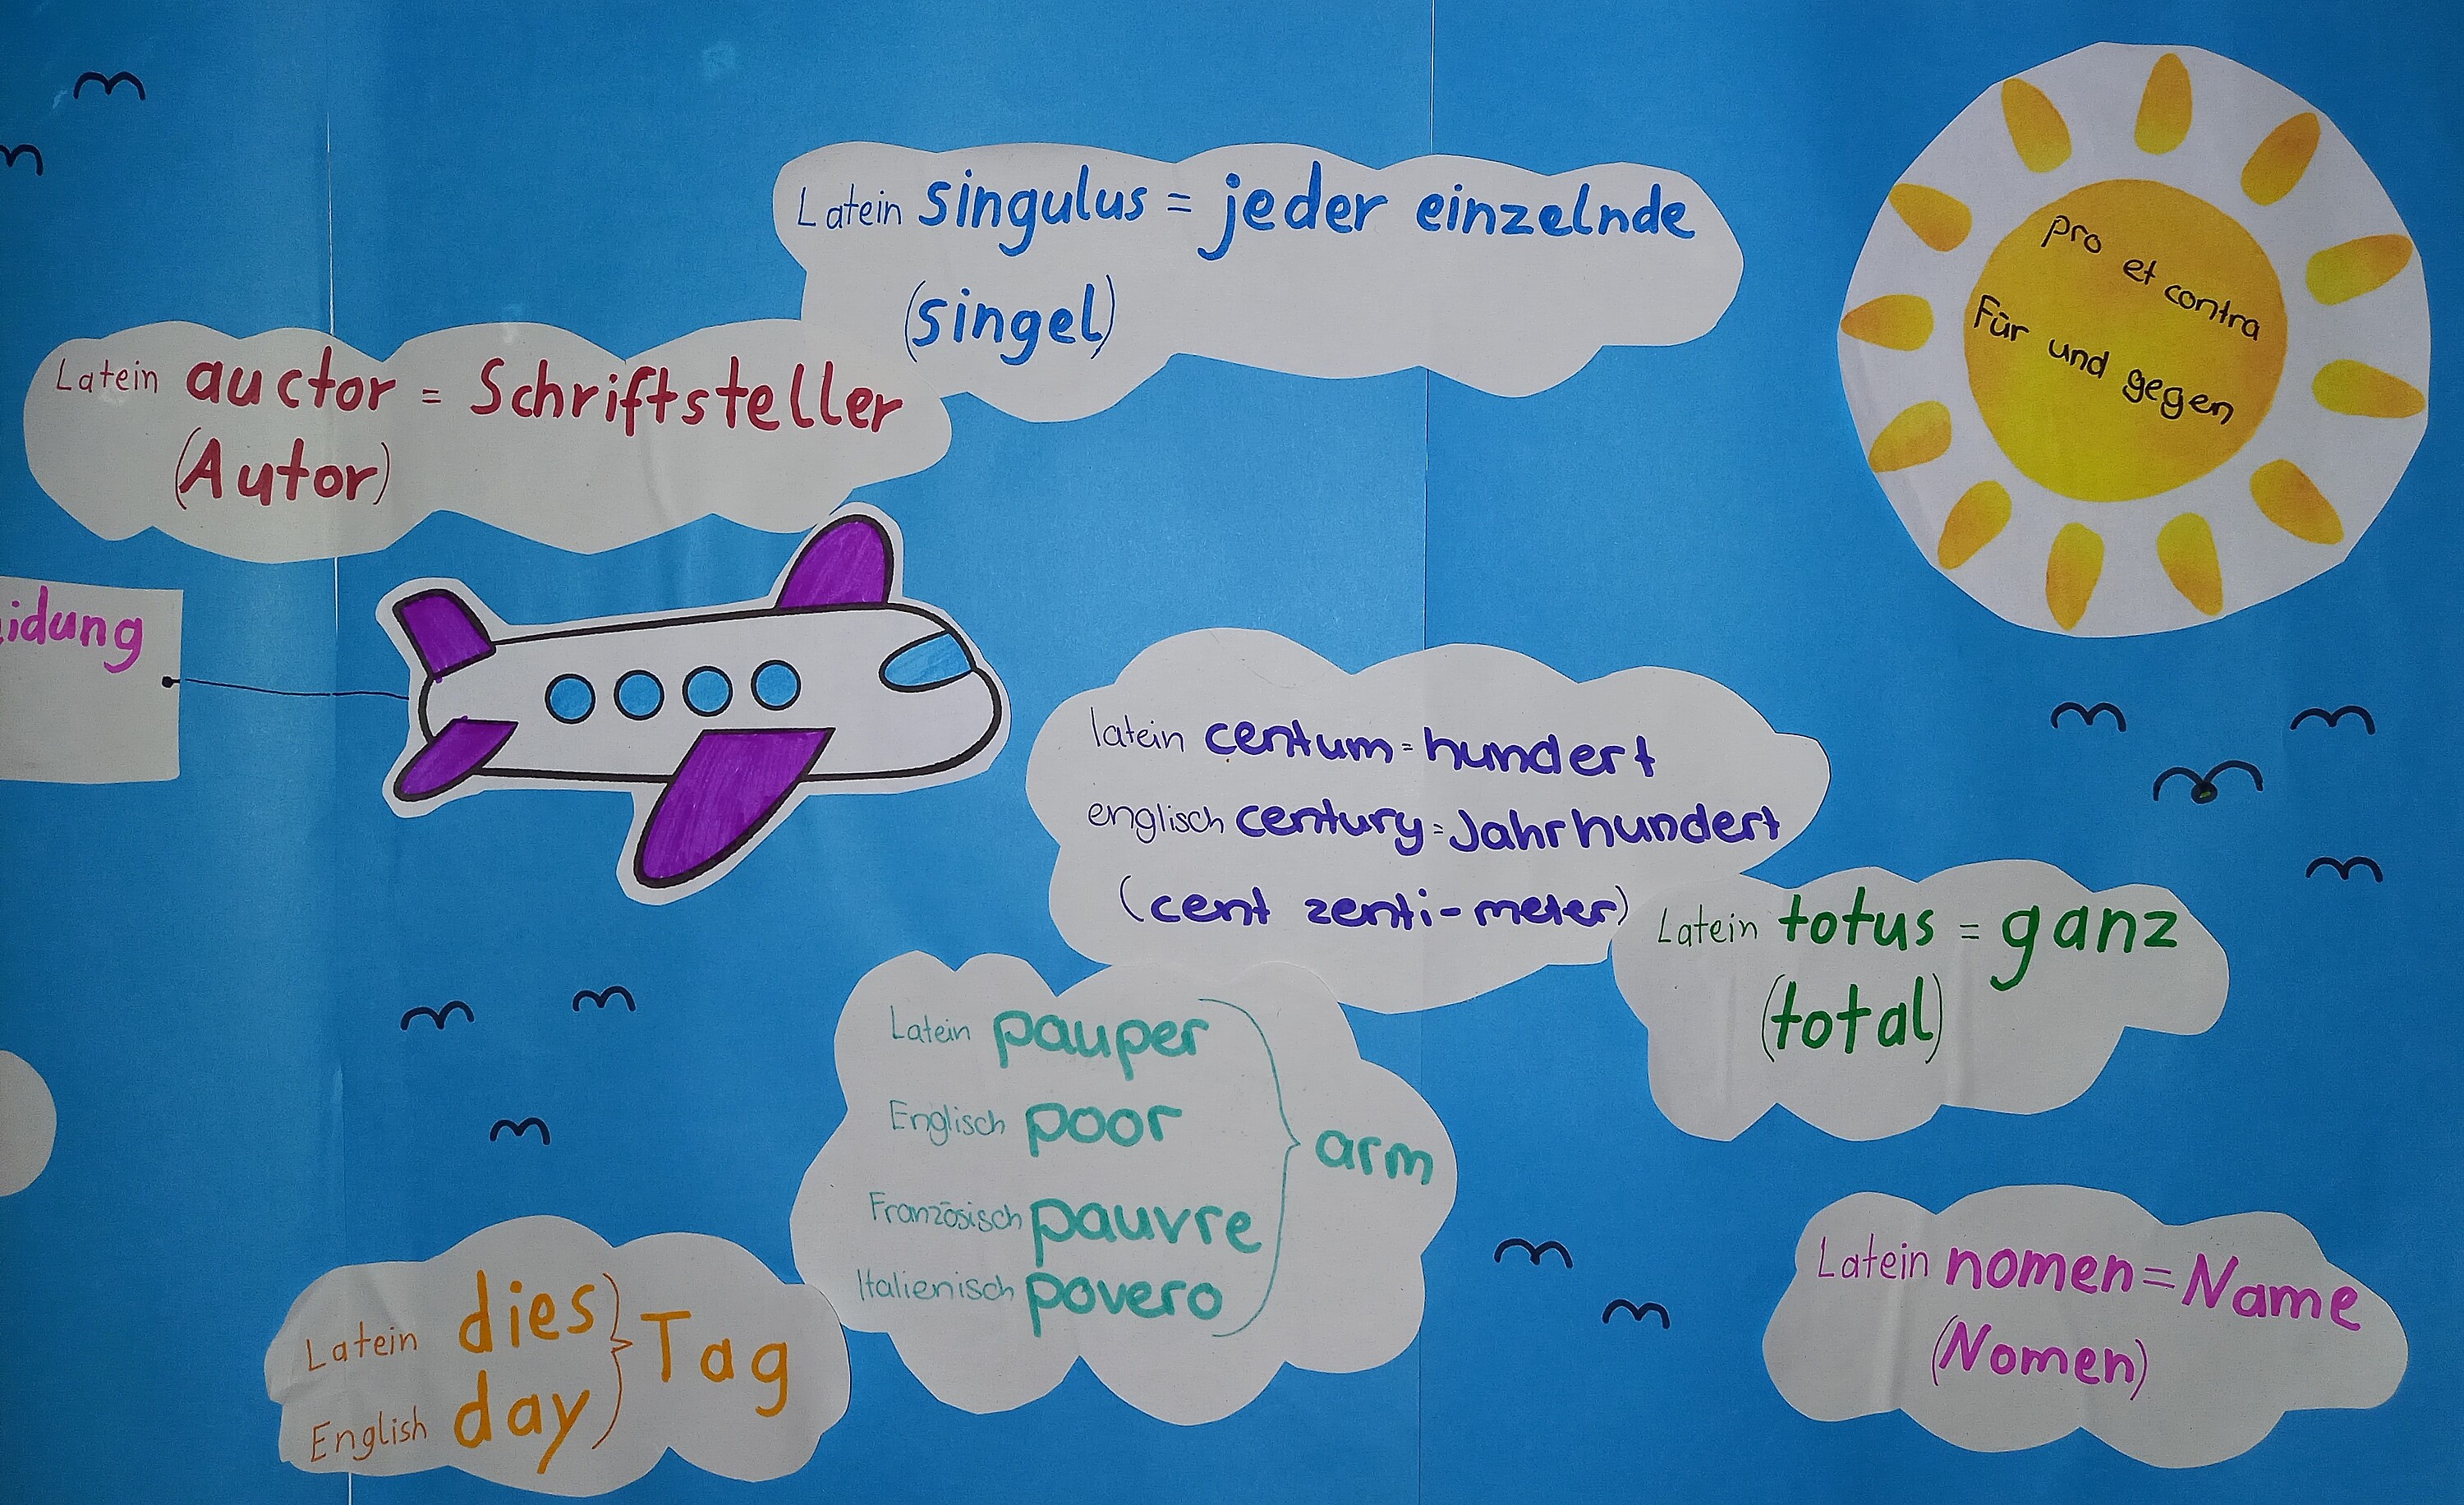 Latein singulus = jeder einzelnde
(singel)
pro et contra
Für und gegen
Latein auctor = Schriftsteller
(Autor)
idung
latein centum = hundert
englisch century = Jahrhundert
(cent zenti-meter)
Latein totus = ganz
(total)
Latein pauper
Englisch poor
Französisch pauvre
Italienisch povero
arm
Latein dies
English day
Tag
Latein nomen = Name
(Nomen)